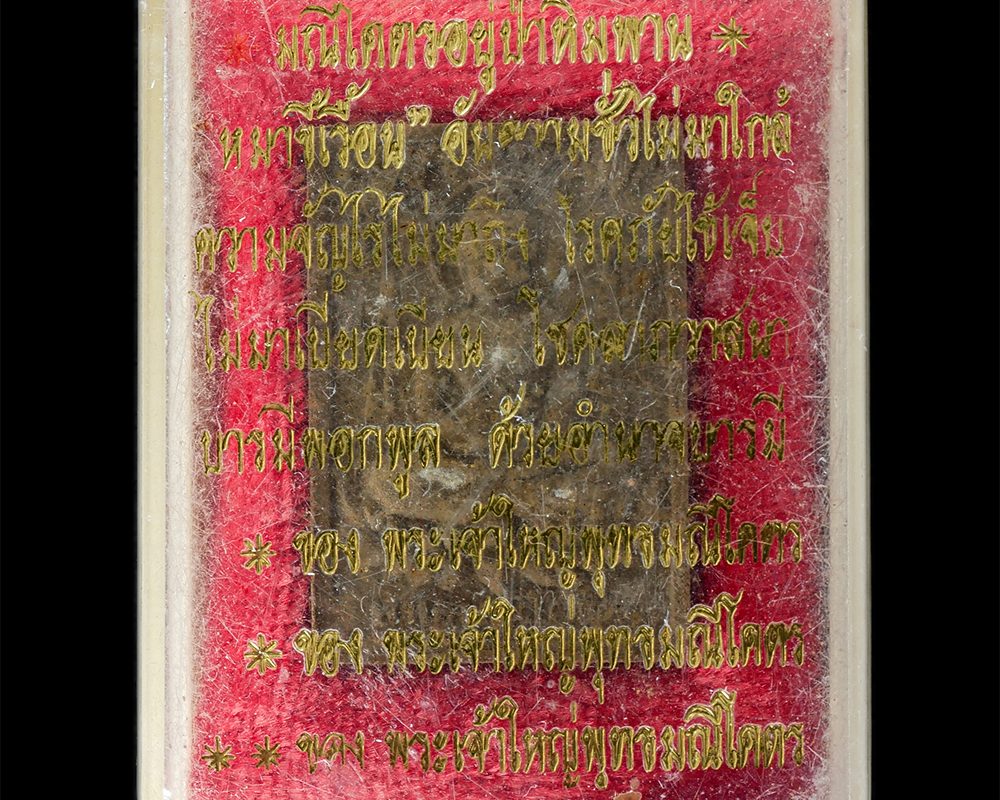 มณีโคตรอยู่ป่าหิมพาน *
หมาขี้เรื้อน" อันความชั่วไม่มาใกล้
ความจัญไรไม่มาถึง โรคภัยไข้เจ็บ
ไม่มาเบียดเบียน โชคลาภวาสนา
บารมีพอกพูล ด้วยอำนาจบารมี
* ของ พระเจ้าใหญ่พุทธมณีโคตร
* ของ พระเจ้าใหญ่พุทธมณีโคตร
* * ของ พระเจ้าใหญ่พุทธมณีโคตร